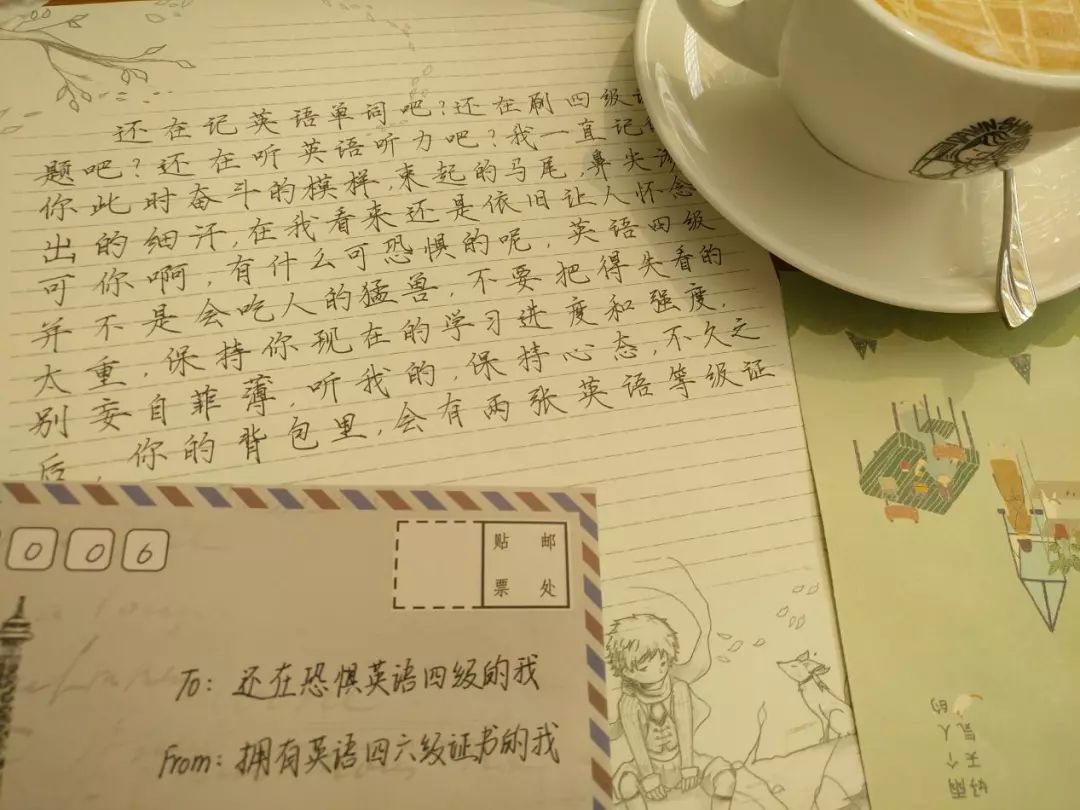 还在记英语单词吧?还在刷四级
题吧?还在听英语听力吧?我一直记
你此时奋斗的模样,束起的马尾,鼻尖
出的细汗,在我看来还是依旧让人怀念
可你啊,有什么可恐惧的呢,英语四级
并不是会吃人的猛兽,不要把得失看的
太重,保持你现在的学习进度和强度,
别妄自菲薄,听我的,保持心态,不久之
后,你的背包里,会有两张英语等级证
006
贴 邮
票 处
To: 还在恐惧英语四级的我
From: 拥有英语四六级证书的我
雨个人的
好天气